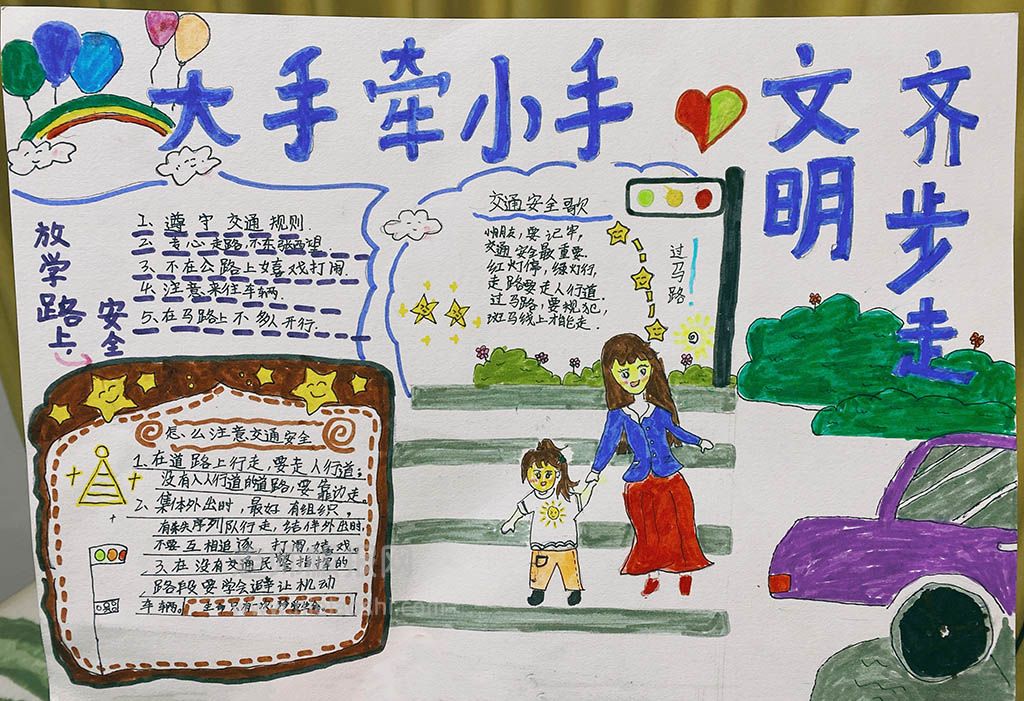 大手牵小手
文明
齐步走
放学路上
安全
1. 遵守交通规则.
2. 专心走路,不东张西望.
3、不在公路上嬉戏打闹.
4、注意来往车辆.
5、在马路上不多人并行.
交通安全歌
小朋友,要记牢,
交通安全最重要.
红灯停,绿灯行,
走路要走人行道.
过马路,要规范,
斑马线上才能走.
过马路
怎么注意交通安全
1.在道路上行走,要走人行道;
没有人人行道的道路,要靠边走。
2、集体外出时,最好有组织、
有秩序列队行走,结伴外出时,
不要互相追逐、打闹、嬉戏。
3.在没有交通民警指挥的
路段要学会避让机动
车辆。生命只有一次